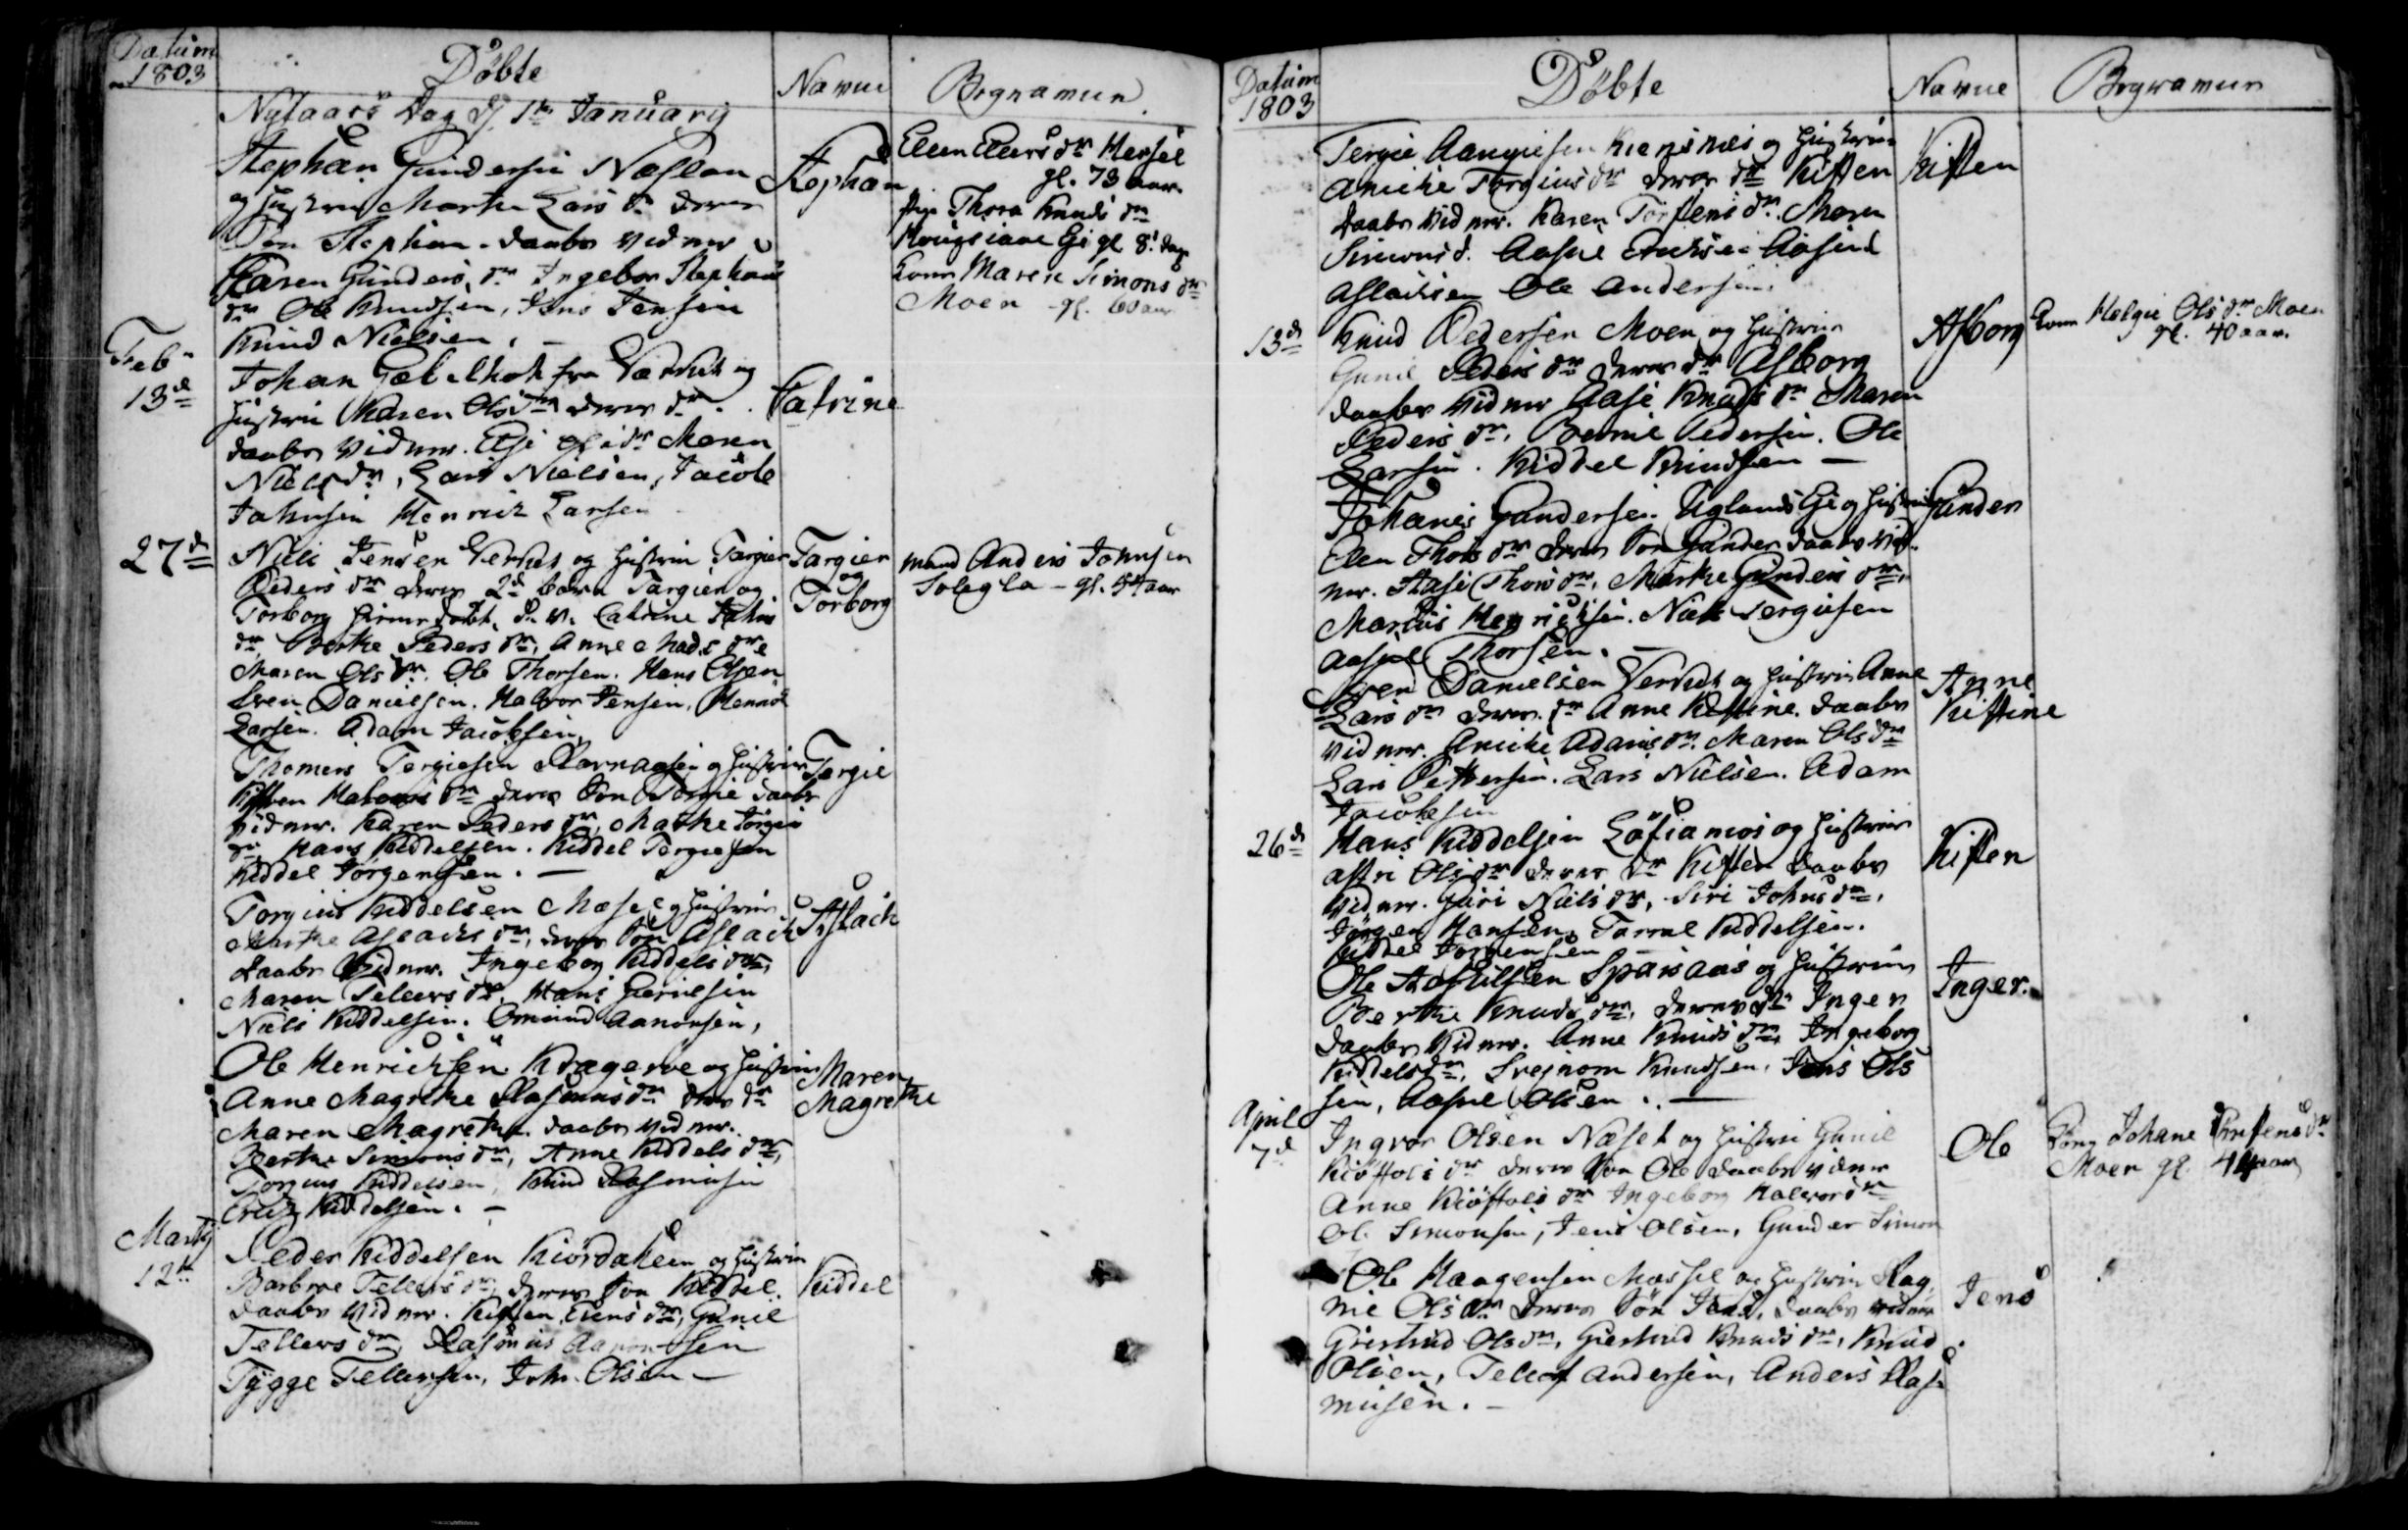 Datum
1803
Döbte
Navne
Begravne
Nytaars Dag d 1te Januarij
Stephan Gundersen Næslan
og Hustrue Marthe Lars dr deres
Sön Stephan. daabs Vidner
Karen Gunders dr Ingebor Stephans
dr Ole Knudsen, Jens Jensen
Knud Nielsen. –
Stephan
Elen Elers dr Messel
gl. 73 aar.
Thora Knuds dr
gl 8 dage
Kone Maren Simons dr
Moen gl. 60 aar
Febr
13d
Johan fra Verket og
Hustrue Karen Ols dr deres dr
daabs Vidner. Else dr Maren
Niels dr, Lars Nielsen, Jacob
Johnsen Henrich Larsen
Catrine
27d
Niels Jensen Verket og Hustrue Targier
Peders dr deres 2d börn Targier og
Torborg hiemedöbt. d. v. Catrine
dr Berthe Peders dr, Anne Mads dr
Maren Ols dr. Ole Thorsen. Hans Olsen
Sven Danielsen. Halvor Jensen, Henrich
Larsen. Adam Jacobsen
Targier
og
Torborg
mand Anders Johnsen
Solegla – gl. 54 aar
Thomes Tergiesen Ravnaasen og Hustrue
Kisten dr deres Sön Tergie daabs
Vidner. Karen Peders dr, Marthe Törges
dr Hans Kiddelsen. Kiddel Tergiesen
Kiddel Jörgensen. –
Tergie
Torgius Kiddelsen Mæsel og Hustrue
Aslachs dr, deres Sön Aslach
daabs Vidner. Ingebog Kiddels dr,
Maren Tellevs dr. Hans
Niels Kiddelsen. Omund Aanonsen,
Aslach
Ole Henrichsen Kragerøe og Hustrue
Anne Magrethe Rasmus dr deres dr
Maren Magrethe. daabs Vidner.
Berthe Simons dr, Anne Kiddels dr,
Torgius Kiddelsen, Knud Rasmusen
Kiddelsen. –
Maren
Magrethe
Martij
12te
Peder Kiddelsen og Hustrue
Barbroe Tellevs dr, deres Sön Kiddel.
daabs Vidner. Kisten Evens dr, Gunil
Tellevs dr, Rasmus Aanonsen
Tygge Tellevsen, John Olsen –
Kiddel
Datum
1803
Döbte
Navne
Begravne
Tergie Aanyiesen og Hustrue
Aniche Torgius dr deres dr Kisten
daabs Vidner. Karen Torstens dr. Maren
Simons d. Aasne
Aslachsen Ole Andersen
Kisten
13d
Knud Pedersen Moen og Hustrue
Gunil Peders dr deres dr Asborg
daabs Vidner Aase Knuds dr Maren
Peders dr. Pedersen. Ole
Larsen. Kiddel Knudsen –
Asborg
Kone Helgie Ols dr Moen
gl. 40 aar.
Johanes Gundersen Uglands Ei og Hustrue
Elen Thors dr deres Sön Gunder daabs vid-
ner. Aase Thors dr, Marthe Gunders dr,
Marcus Henrichsen. Niels Tergiesen
Thorsen. –
Gunder
Sven Danielsen Verket og Hustrue Anne
Lars dr deres dr Anne Kistine. daabs
Vidner. Aniche Adams dr. Maren Ols dr
Lars Pettersen. Lars Nielsen. Adam
Jacobsen
Anne
Kistine
26d
Hans Kiddelsen og Hustrue
Astri Ols dr deres dr Kisten daabs
Vidner. Guri Niels dr, Siri Johns dr,
Jörgen Hansen, Kiddelsen.
Kiddel Jörgensen –
Kisten
Ole og Hustrue
Berthe Knuds dr, deres dr Inger
daabs Vidner. Anne Knuds dr, Ingeborg
Kiddels dr, Knudsen, Jens Ols
sen, Olsen. –
Inger.
April
7d
Ingvor Olsen Næset og Hustrue Gunil
Kiöstols dr deres Sön Ole daabs Vidner
Anne Kiöstols dr Ingeborg Halvors dr
Ole Simonsen, Jens Olsen, Gunder Simon
Ole
Johane dr
Moen gl. 44 aar
Ole Haagensen Mæssel og Hustrue Rag
nie Ols dr deres Sön Jens, daabs vidner
Giertrud Ols dr, Giertrud Knuds dr, Knud
Olsen, Telef Andersen, Anders Ras
musen. –
Jens